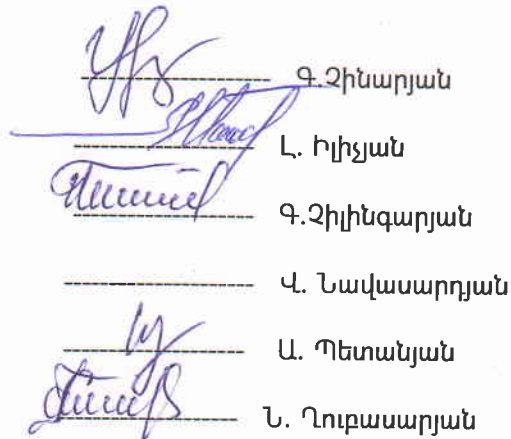 Գ.Չինարյան
Լ. Իլիչյան
Գ.Չիլինգարյան
Վ. Նավասարդյան
Ա. Պետանյան
Ն. Ղուբասարյան